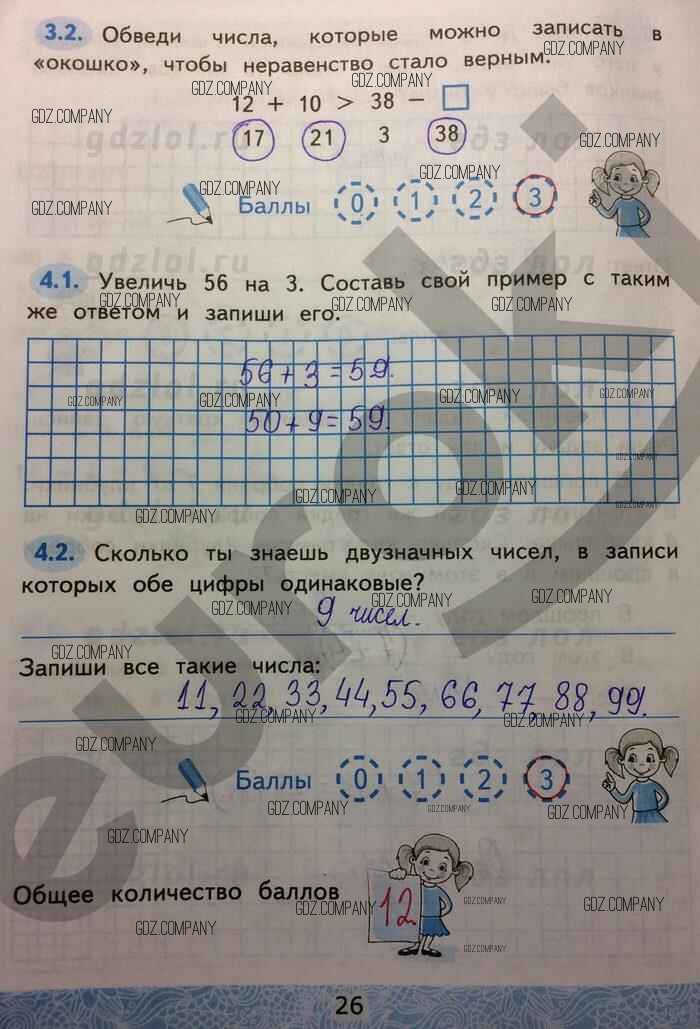 3.2. Обведи числа, которые можно записать в
«окошко», чтобы неравенство стало верным.
12 + 10 > 38 −
17 21 3 38
Баллы 0 1 2 3
4.1. Увеличь 56 на 3. Составь свой пример с таким
же ответом и запиши его.
56 + 3 = 59.
50 + 9 = 59.
4.2. Сколько ты знаешь двузначных чисел, в записи
которых обе цифры одинаковые?
9 чисел.
Запиши все такие числа:
11, 22, 33, 44, 55, 66, 77, 88, 99.
Баллы 0 1 2 3
Общее количество баллов 12
26
GDZ.COMPANY
gdzlol.ru
euroki